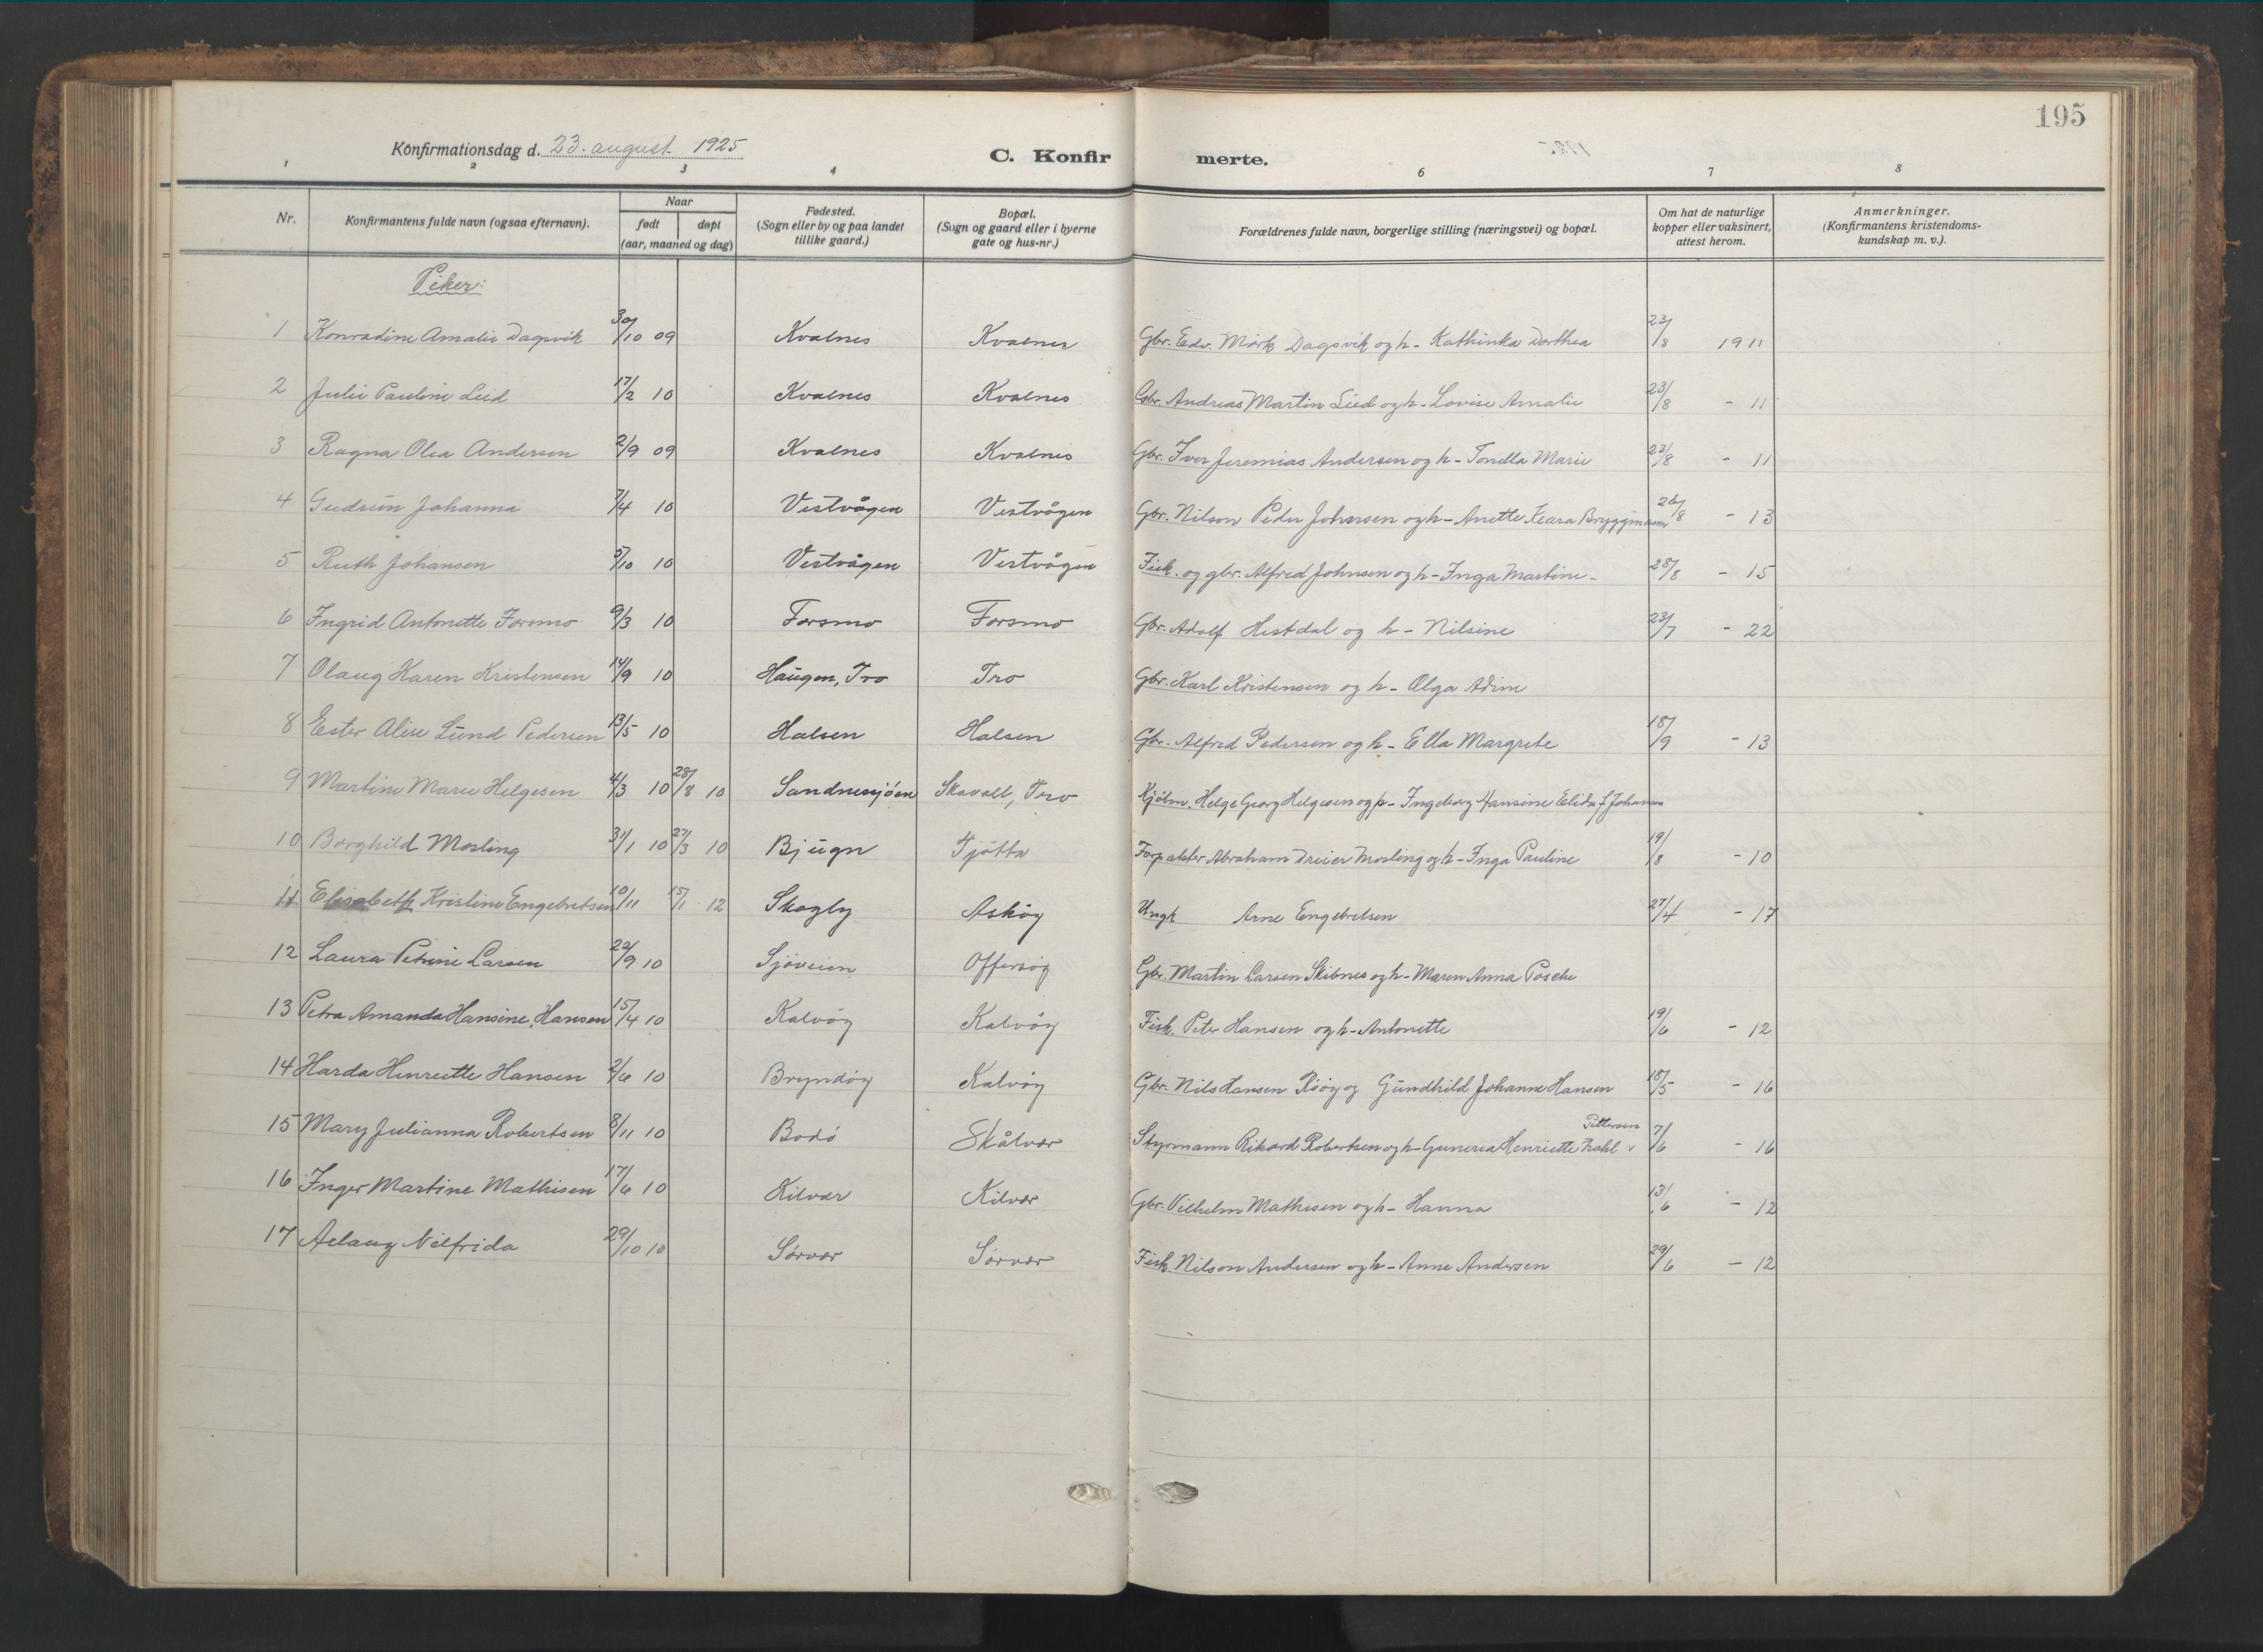 195
Konfirmationsdag d. 23. august 1925
C. Konfirmerte.
1 2 3 4 6 7 8
Nr. Konfirmantens fulde navn (ogsaa efternavn). Naar født døpt (aar, maaned og dag) Fødested. (Sogn eller by og paa landet tillike gaard.) Bopæl. (Sogn og gaard eller i byerne gate og hus-nr.) Forældrenes fulde navn, borgerlige stilling (næringsvei) og bopæl. Om hat de naturlige kopper eller vaksinert, attest herom. Anmerkninger. (Konfirmantens kristendoms-kundskap m. v.).
Piker:
1 Konradine Amalie Dagsvik 30/10 09 Kvalnes Kvalnes Gbr. Edv. Mørk Dagsvik og h- Kathinka Dorthea 23/8 1911
2 Julie Pauline Lied 17/2 10 Kvalnes Kvalnes Gbr. Andreas Martin Lied og h- Lovise Amalie 23/8 - 11
3 Ragna Olea Andersen 2/9 09 Kvalnes Kvalnes Gbr. Iver Jeremias Andersen og h- Tonella Marie 23/8 - 11
4 Gudrun Johanna 7/4 10 Vestvågen Vestvågen Gbr. Nilson Peder Johnsen og h- Anette Klara Bryggmann 26/8 - 13
5 Ruth Johansen 5/10 10 Vestvågen Vestvågen Fisk. og gbr. Alfred Johnsen og h- Inga Martine - 28/8 - 15
6 Ingrid Antonette Forsmo 9/3 10 Forsmo Forsmo Gbr. Adolf Hestdal og h- Nilsine 23/7 - 22
7 Olaug Karen Kristensen 14/9 10 Haugen, Tro Tro Gbr. Karl Kristensen og h- Olga Adine
8 Ester Alise Lund Pedersen 13/5 10 Halsen Halsen Gbr. Alfred Pedersen og h- Ella Margrete 18/9 - 13
9 Martine Marie Helgesen 4/3 10 28/8 10 Sandnessjøen Skavoll, Tro Kjølm. Helge Georg Helgesen og h- Ingeborg Hansine Elida f Johansen
10 Borghild Mosling 31/1 10 27/3 10 Bjugn Tjøtta Abraham Dreier Mosling og h- Inga Pauline 19/8 - 10
11 Elisabeth Kristine Engebretsen 10/11 15/1 12 Skogly Askøy Ungk Arne Engebretsen 27/4 - 17
12 Laura Petrine Larsen 22/9 10 Sjøveien Offersøy Gbr. Martin Larsen Skibnes og h- Maren Anna Posche
13 Petra Amanda Hansine Hansen 15/4 10 Kalvøy Kalvøy Fisk. Peter Hansen og h- Antonette 19/6 - 12
14 Harda Henriette Hansen 2/6 10 Bryndøy Kalvøy Gbr. Nils Hansen Røøy og Gundhild Johanne Hansen 18/5 - 16
15 Mary Julianna Robertsen 8/11 10 Bodø Skålvær Styrmann Rikard Robertsen og h- Guneria Henriette Zahl Pettersen 7/6 - 16
16 Inger Martine Mathisen 17/6 10 Kilvær Kilvær Gbr. Vilhelm Mathisen og h- Hanna 13/6 - 12
17 Aslaug Nilfrida 29/10 10 Sørvær Sørvær Fisk. Nilson Andersen og h- Anne Andersen 29/6 - 12